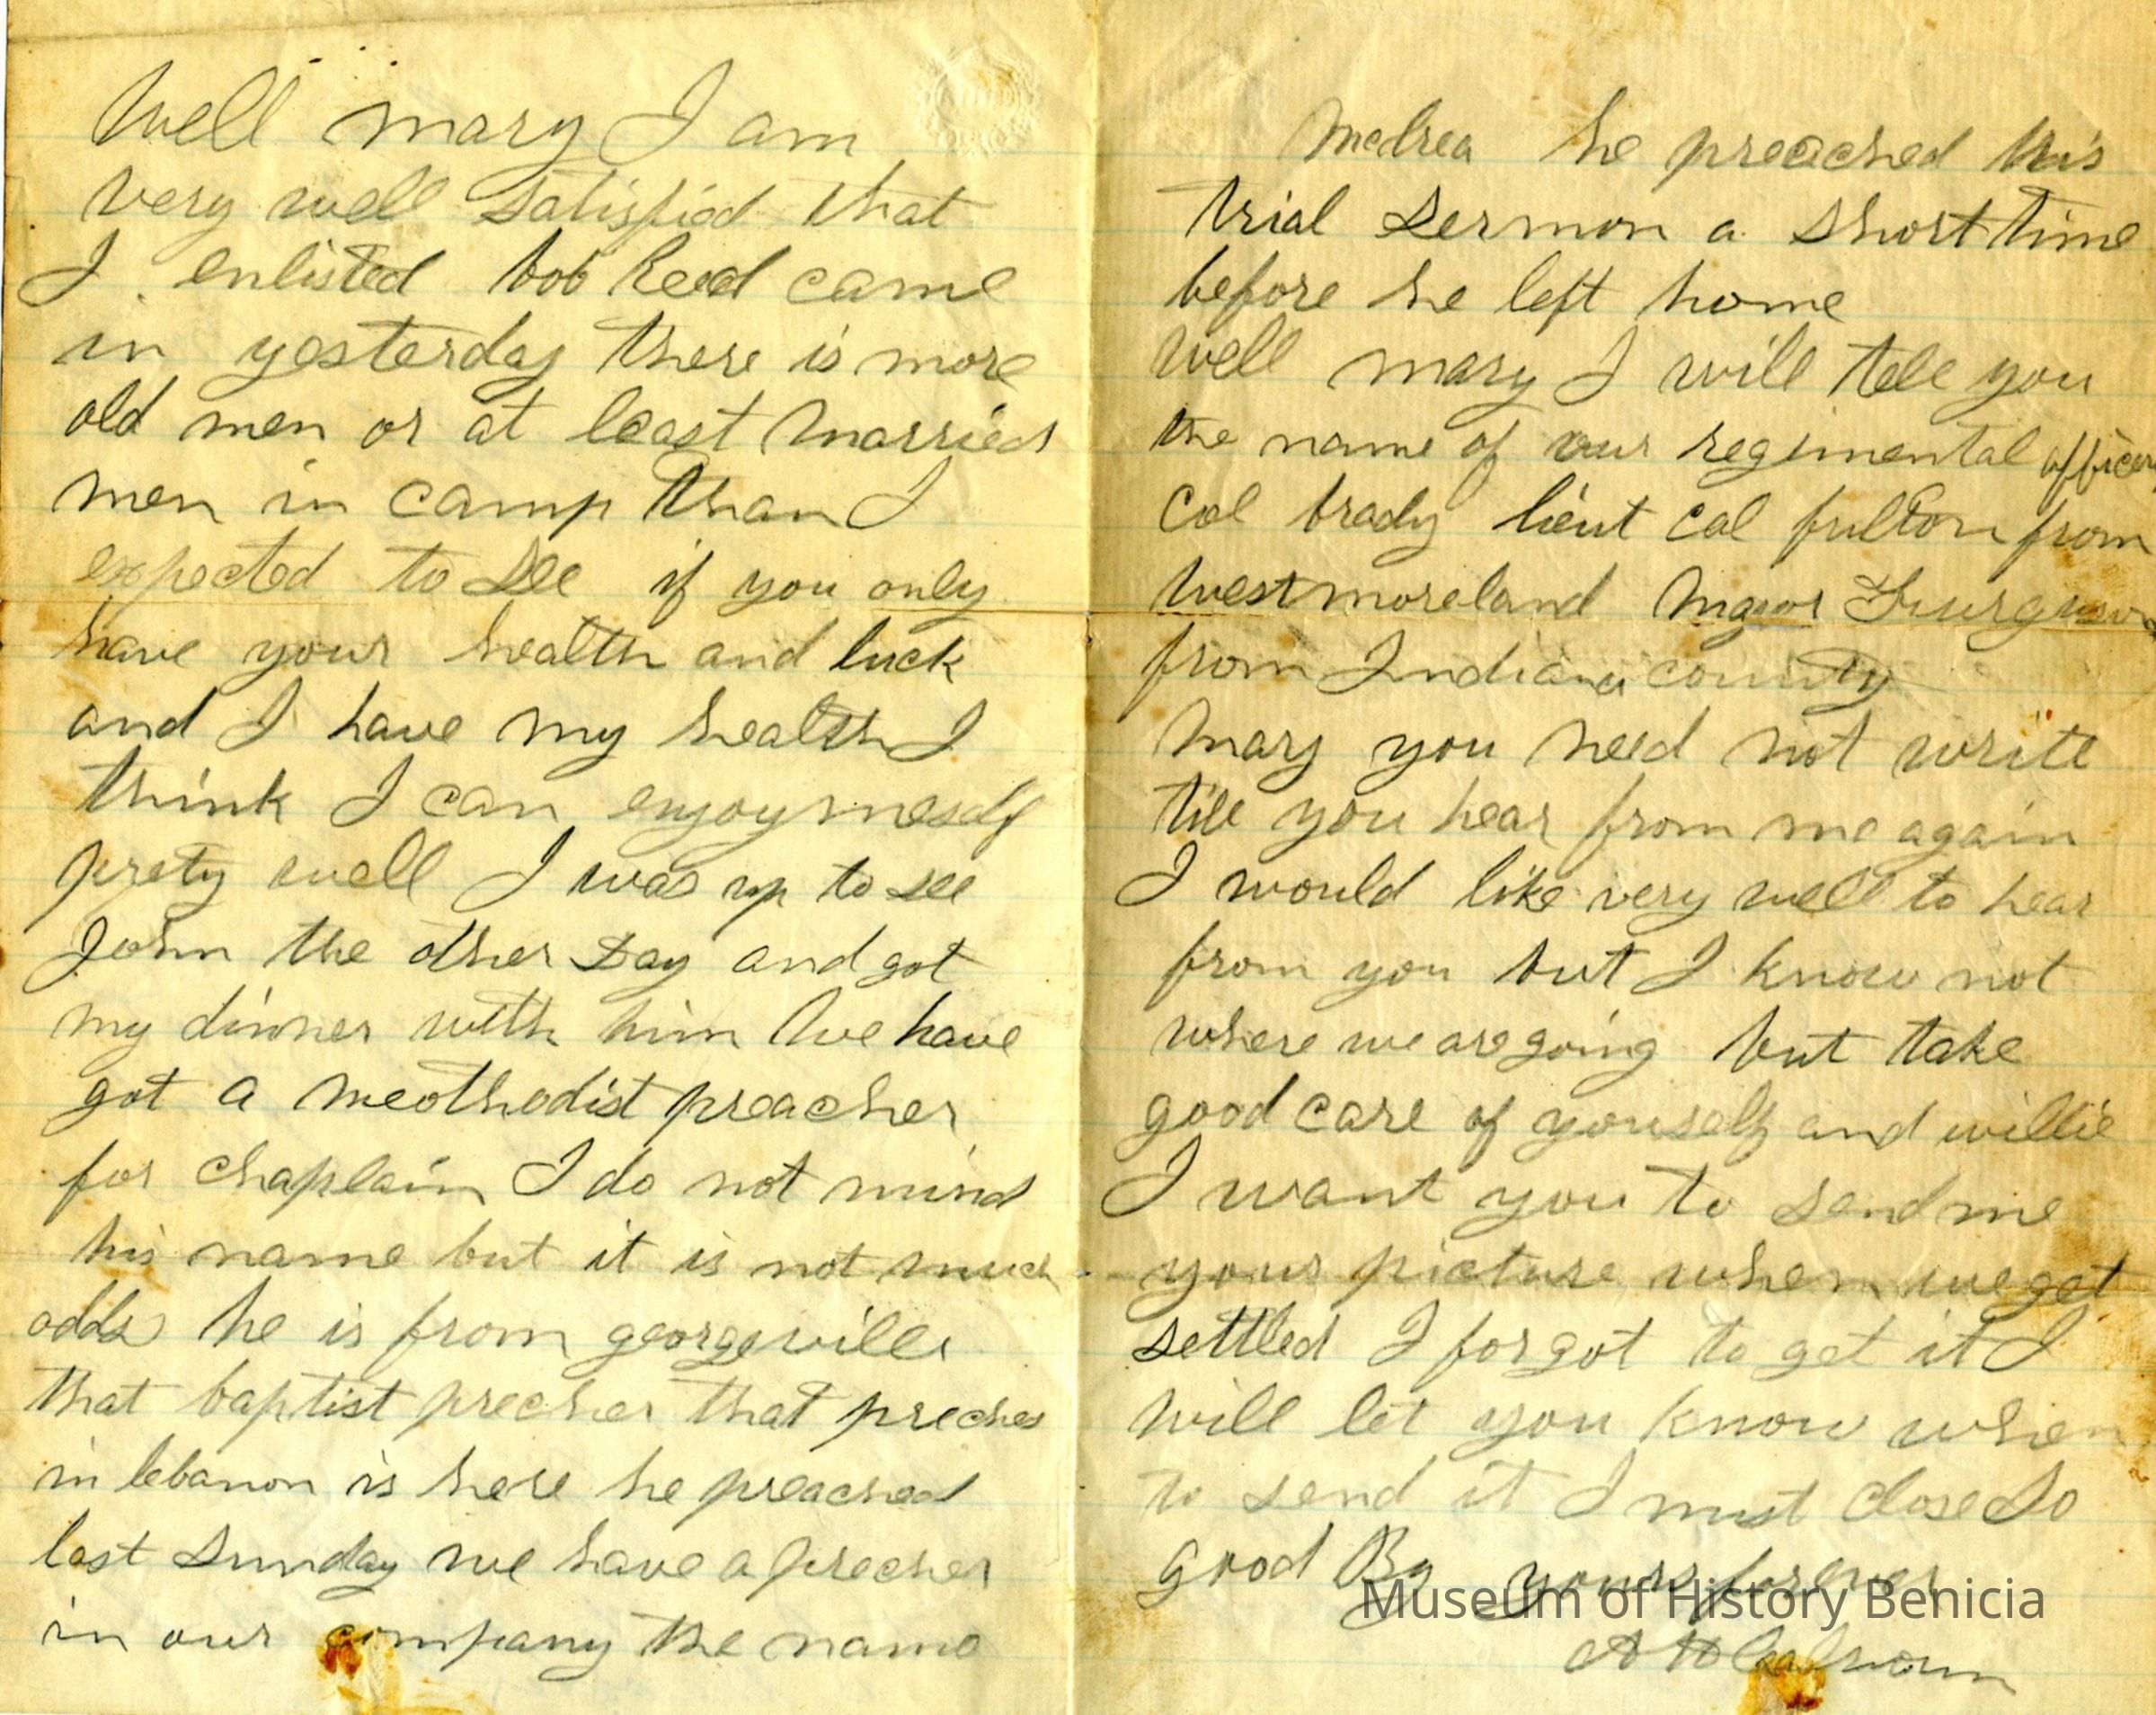 Well mary I am
very well satisfied that
I enlisted bob Reed came
in yesterday there is more
old men or at least married
men in camp than I
expected to see if you only
have your health and luck
and I have my health I
think I can enjoy meself
prety well I was up to see
John the other Day and got
my dinner with him We have
got a meothodist preacher
for chaplain I do not mind
his name but it is not much
odds he is from georgeville
that baptist precher that preches
in lebanon is here he preached
last sunday we have a precher
in our company the name
he preached his
trial sermon a short time
before he left home
well mary I will tell you
the name of our regimental officers
Col brady lieut Col fulton from
westmoreland Major
from Indiana county
Mary you need not write
till you hear from me again
I would like very well to hear
from you but I know not
where we are going but take
good care of youself and willie
I want you to send me
your picture when we get
settled I forgot to get it I
will let you know when
to send it I must close So
good By yours forever
A H Calhoun
Museum of History Benicia